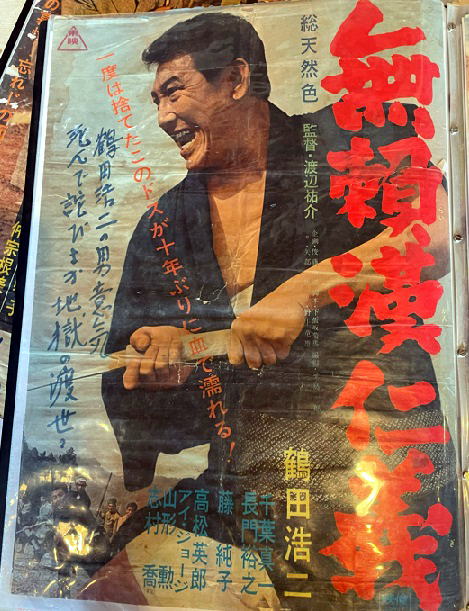 無頼漢仁義
総天然色
監督・渡辺祐介
一度は捨てたこのドスが十年ぶりに血で濡れる!
鶴田浩二の男意気
死んで詫びるか地獄の渡世!
鶴田浩二
千葉真一
長門裕之
藤純子
高松英郎
アイ・ジョージ
山形勲
志村喬
東映
忘れ